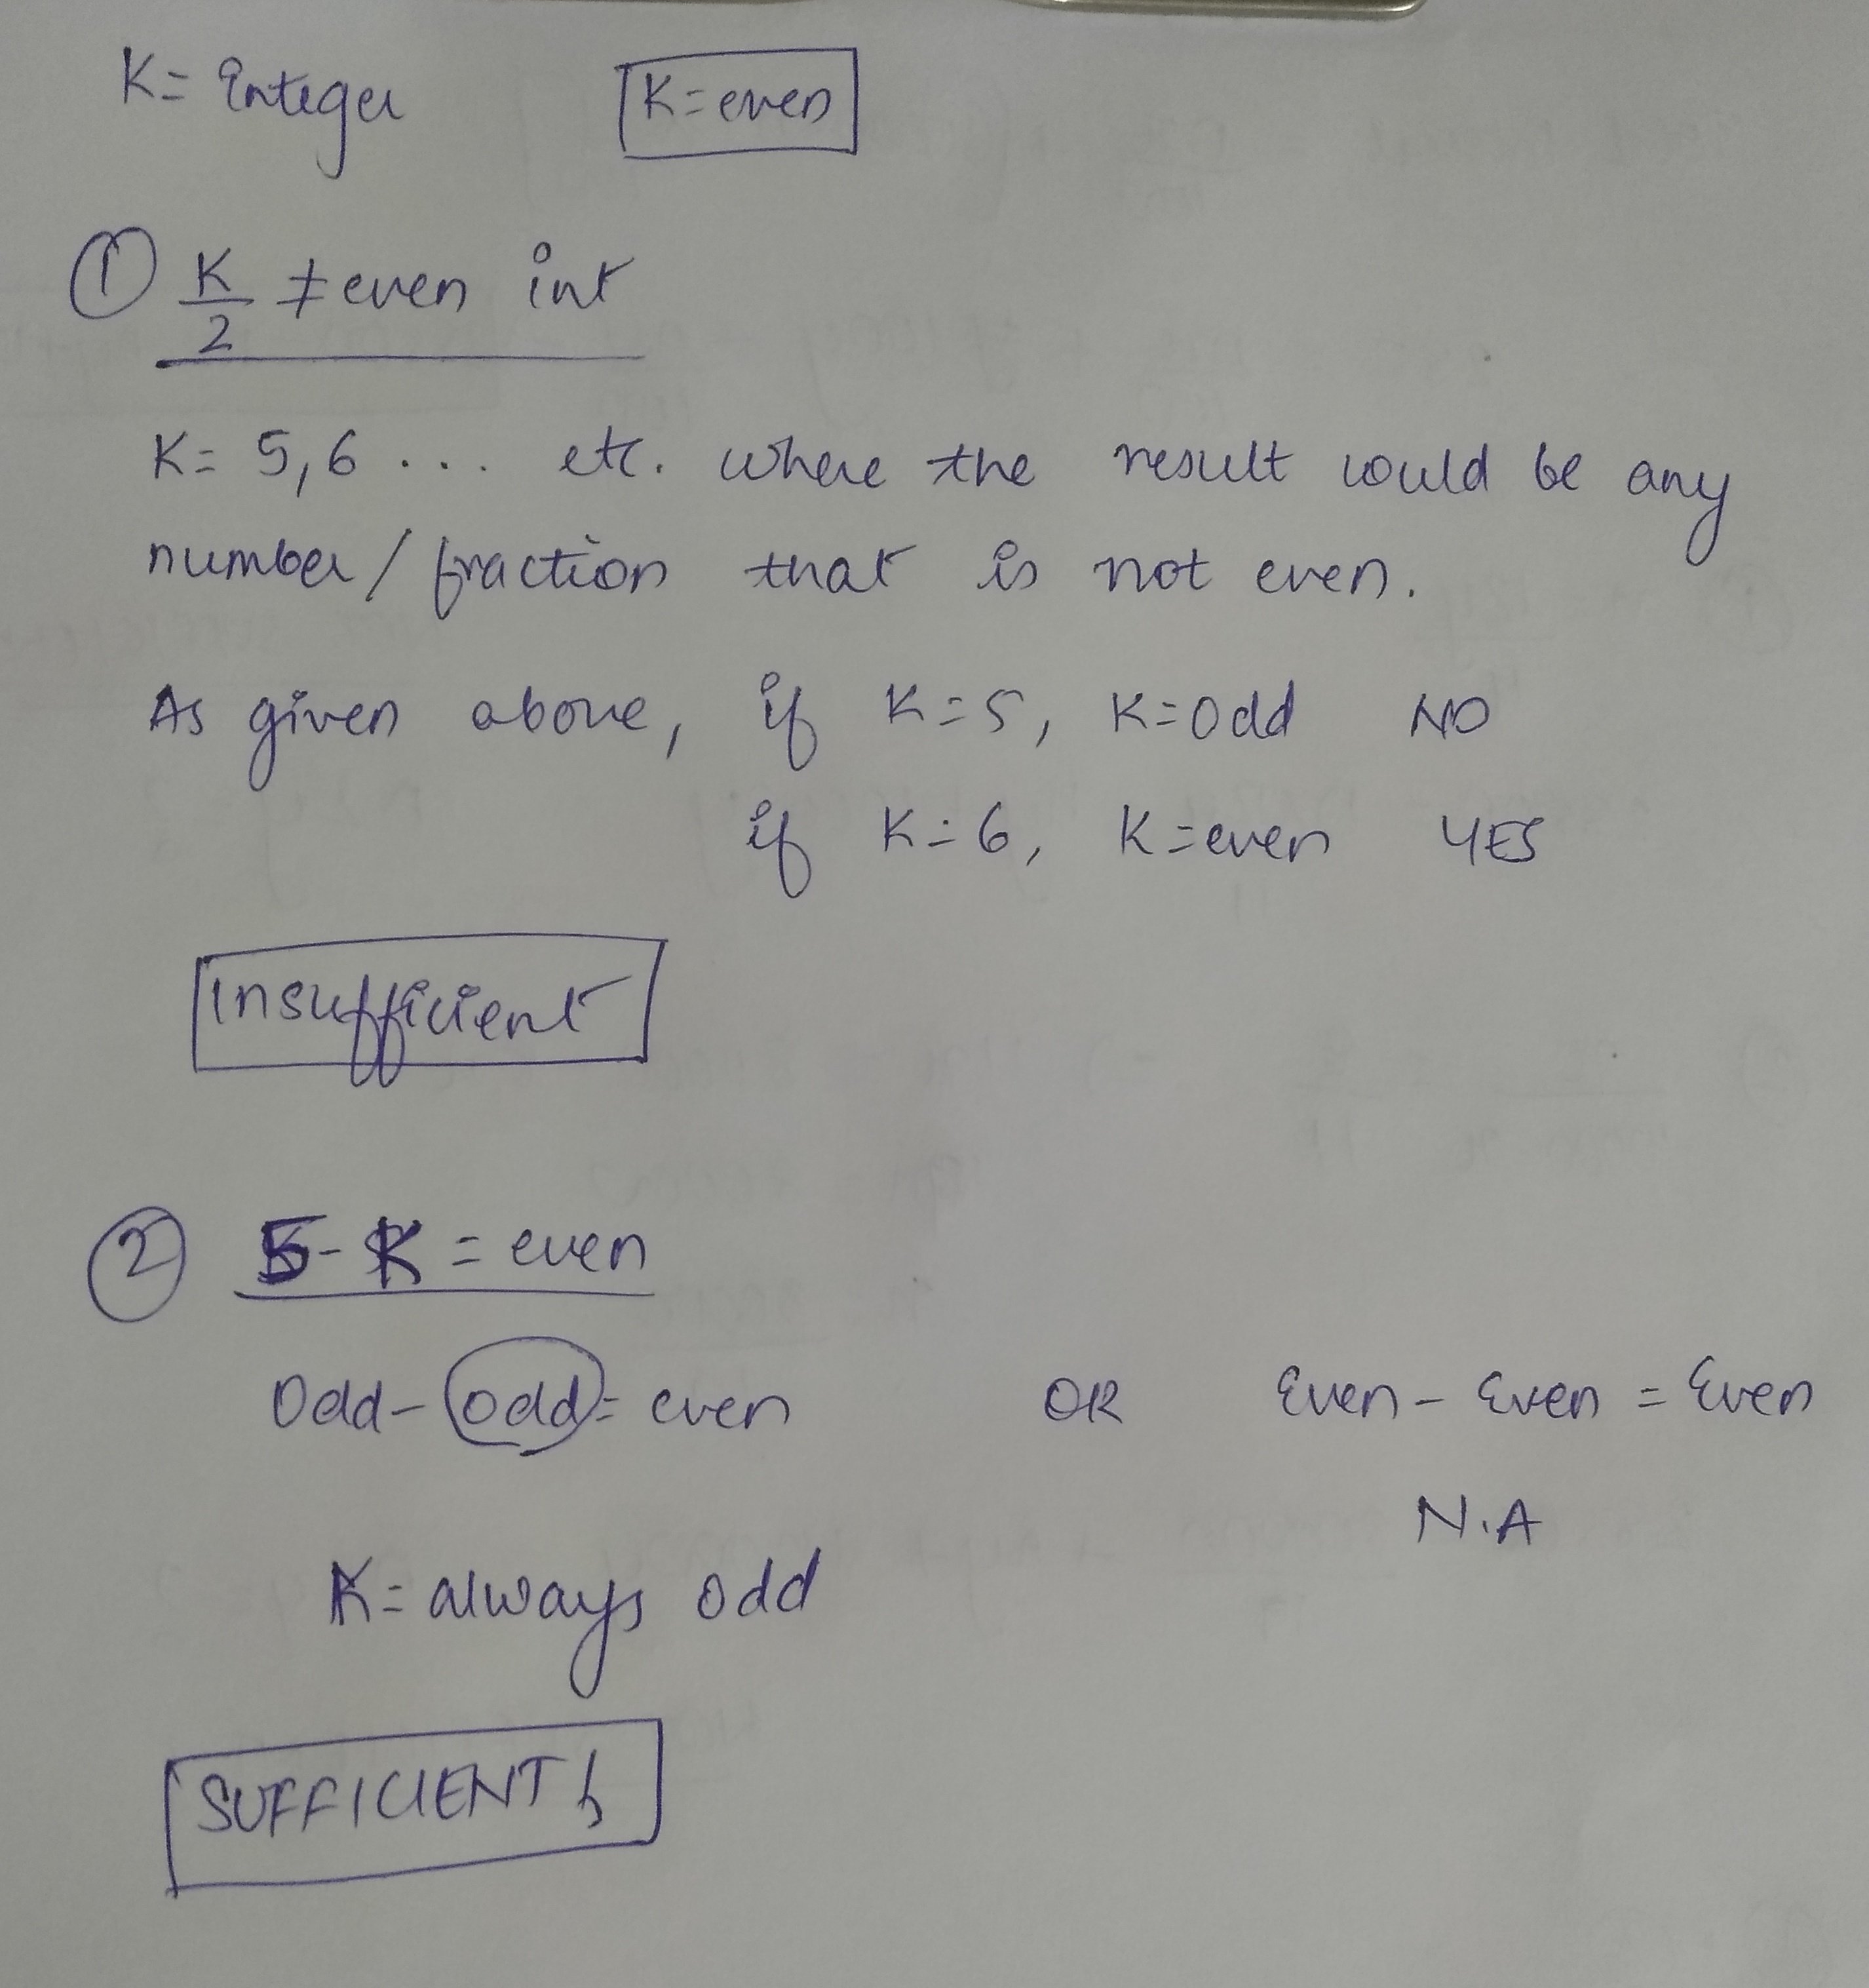 K= Integer K=even
① K/2 ≠ even int
K= 5,6 ... etc. where the result would be any
number/fraction that is not even.
As given above, if K=5, K=odd NO
if K=6, K=even YES
Insufficient
② 5-K = even
Odd-odd= even OR Even- Even = Even
N.A
K= always odd
SUFFICIENT